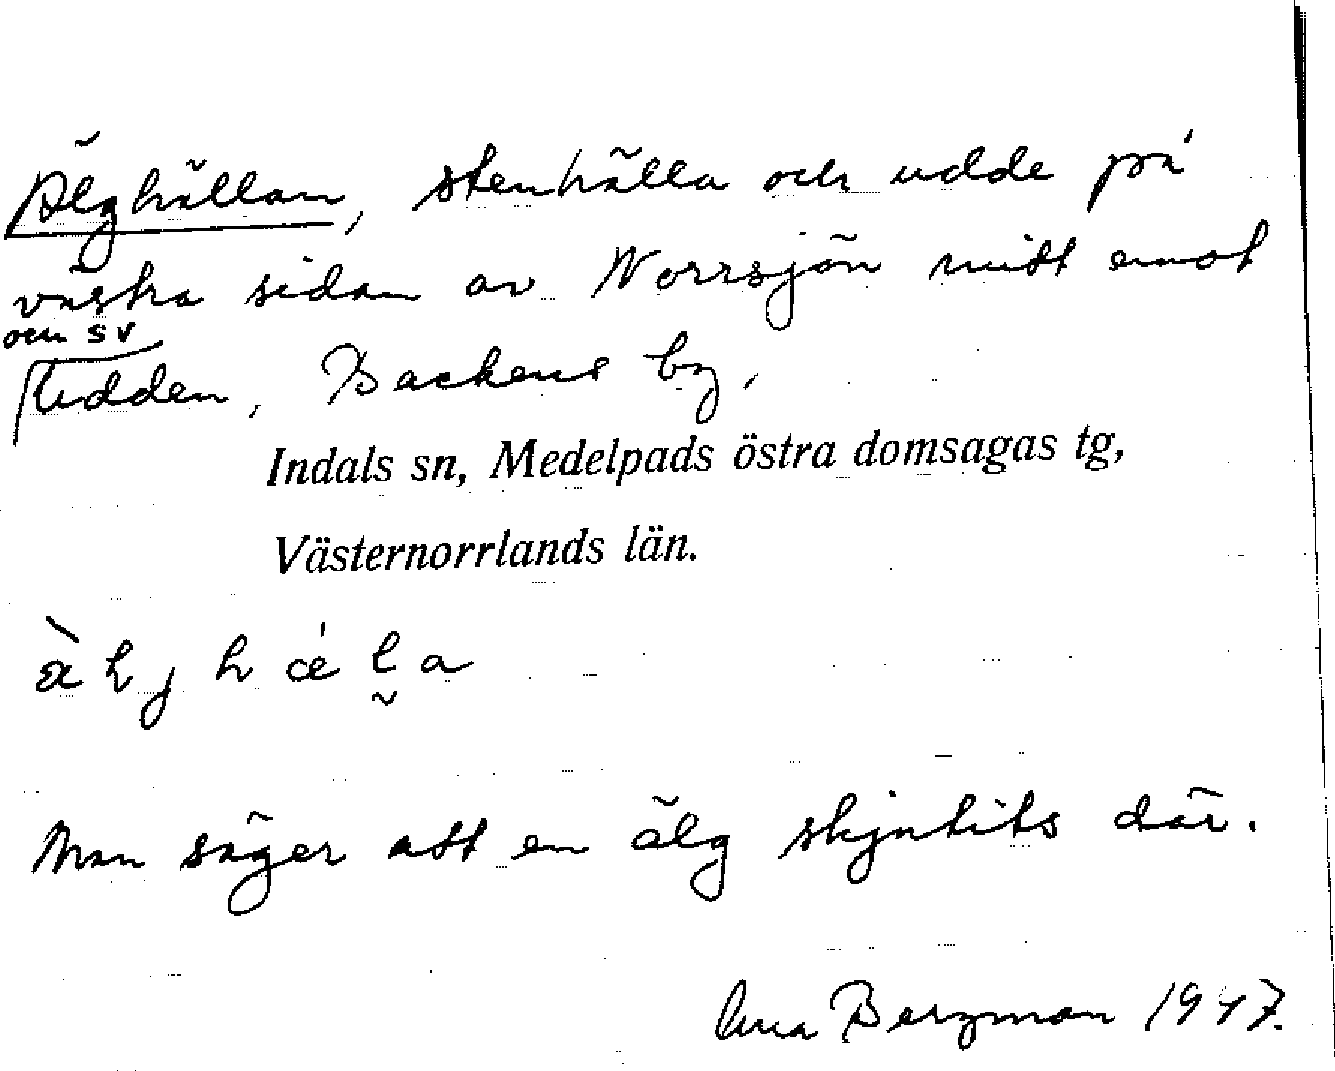 Älghällan, stenhälla och udde på
västra sidan av Norrsjön mitt emot
och SV
Udden, Backens by,
Indals sn, Medelpads östra domsagas tg,
Västernorrlands län.
Man säger att en älg skjutits där.
Bergman 1947.